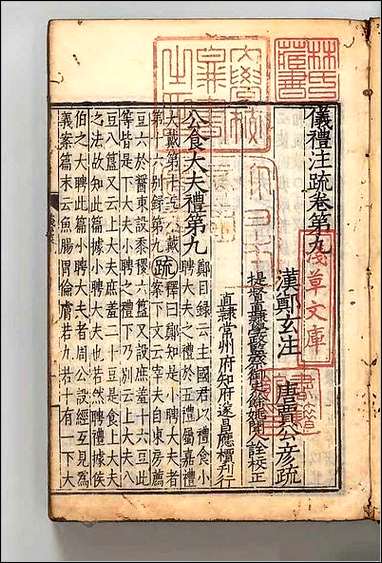 儀禮注疏卷第九
漢鄭玄注　唐賈公彥疏
提督直隸學政監察御史餘姚聞　詮校正
直隸常州府知府遂昌應檟刊行
公食大夫禮第九
鄭目録云主國君以禮食小
聘大夫之禮於五禮屬嘉禮
大戴第十五小戴
第十六別録第九
疏
釋曰鄭知是小聘大夫者
案下文云宰夫自東房薦
豆六於醬東設黍稷六簋又設庶羞十六豆此
等皆是下大夫小聘之禮下乃別云上大夫八
豆八簋又云上大夫庶羞二十豆是食上大夫
之法故知此篇據小聘大夫也若然聘禮據侯
伯之大聘此篇小聘大夫者周公設經互見為
義案篇末云魚腸胃倫膚若九若十有一下大
林氏藏書
淺草文庫